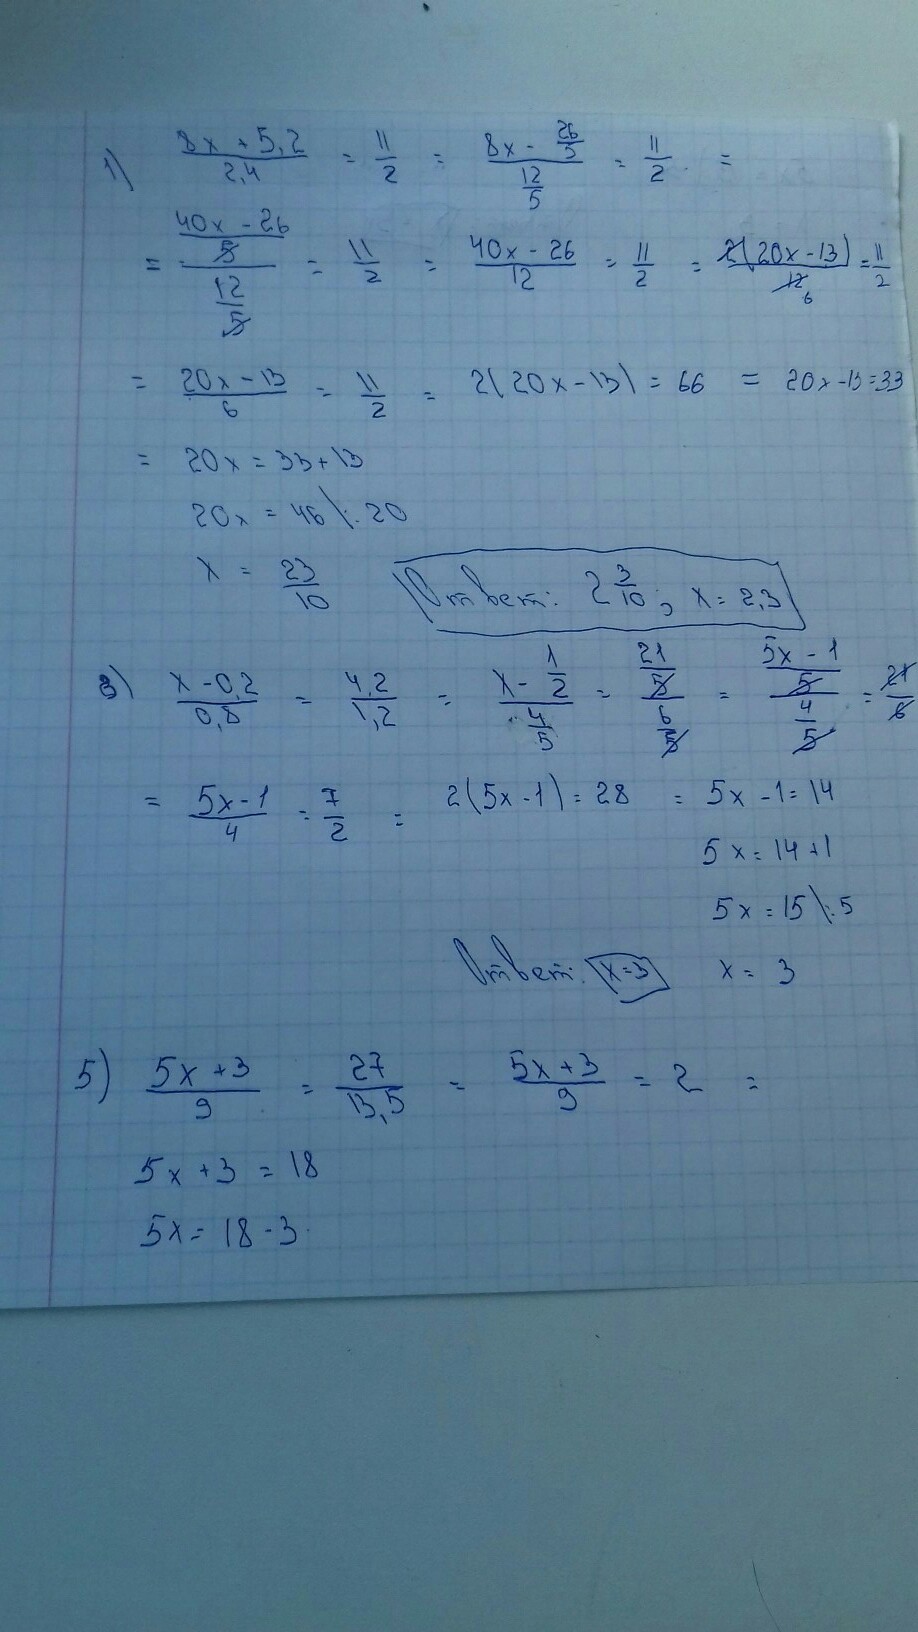 1) (8x + 5,2)/2,4 = 11/2 = (8x - 26/5)/(12/5) = 11/2 =
= ((40x - 26)/5)/(12/5) = 11/2 = (40x - 26)/12 = 11/2 = 2(20x - 13)/12 6 = 11/2
= (20x - 13)/6 = 11/2 = 2(20x - 13) = 66 = 20x - 13 = 33
= 20x = 33 + 13
20x = 46 \: 20
x = 23/10 Ответ: 2 3/10; x = 2,3
3) (x - 0,2)/0,8 = 4,2/1,2 = (x - 1/2)/(4/5) = (21/5)/(6/5) = ((5x - 1)/5)/(4/5) = 21/6
= (5x - 1)/4 = 7/2 = 2(5x - 1) = 28 = 5x - 1 = 14
5x = 14 + 1
5x = 15 \: 5
Ответ: x = 3 x = 3
5) (5x + 3)/9 = 27/13,5 = (5x + 3)/9 = 2 =
5x + 3 = 18
5x = 18 - 3